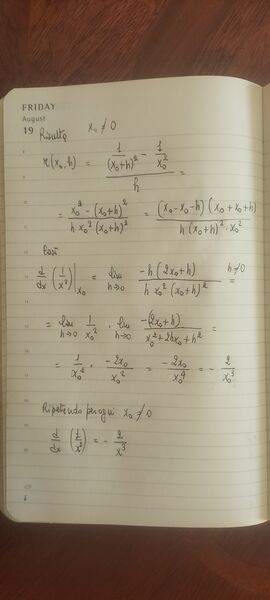 FRIDAY
August
19 Risulta x₀ ≠ 0
r(x₀,h) = (1/(x₀+h)² - 1/x₀²)/h =
= (x₀² - (x₀+h)²)/(h·x₀²(x₀+h)²) = (x₀-x₀-h)(x₀+x₀+h)/(h(x₀+h)²·x₀²)
Così
d/dx (1/x²)|x₀ = lim h→0 -h(2x₀+h)/(h x₀²(x₀+h)²) h≠0 =
= lim h→0 1/x₀² · lim h→0 -(2x₀+h)/(x₀²+2hx₀+h²) =
= 1/x₀² · -2x₀/x₀² = -2x₀/x₀⁴ = -2/x₀³
Ripetendo per ogni x₀ ≠ 0
d/dx (1/x²) = -2/x³